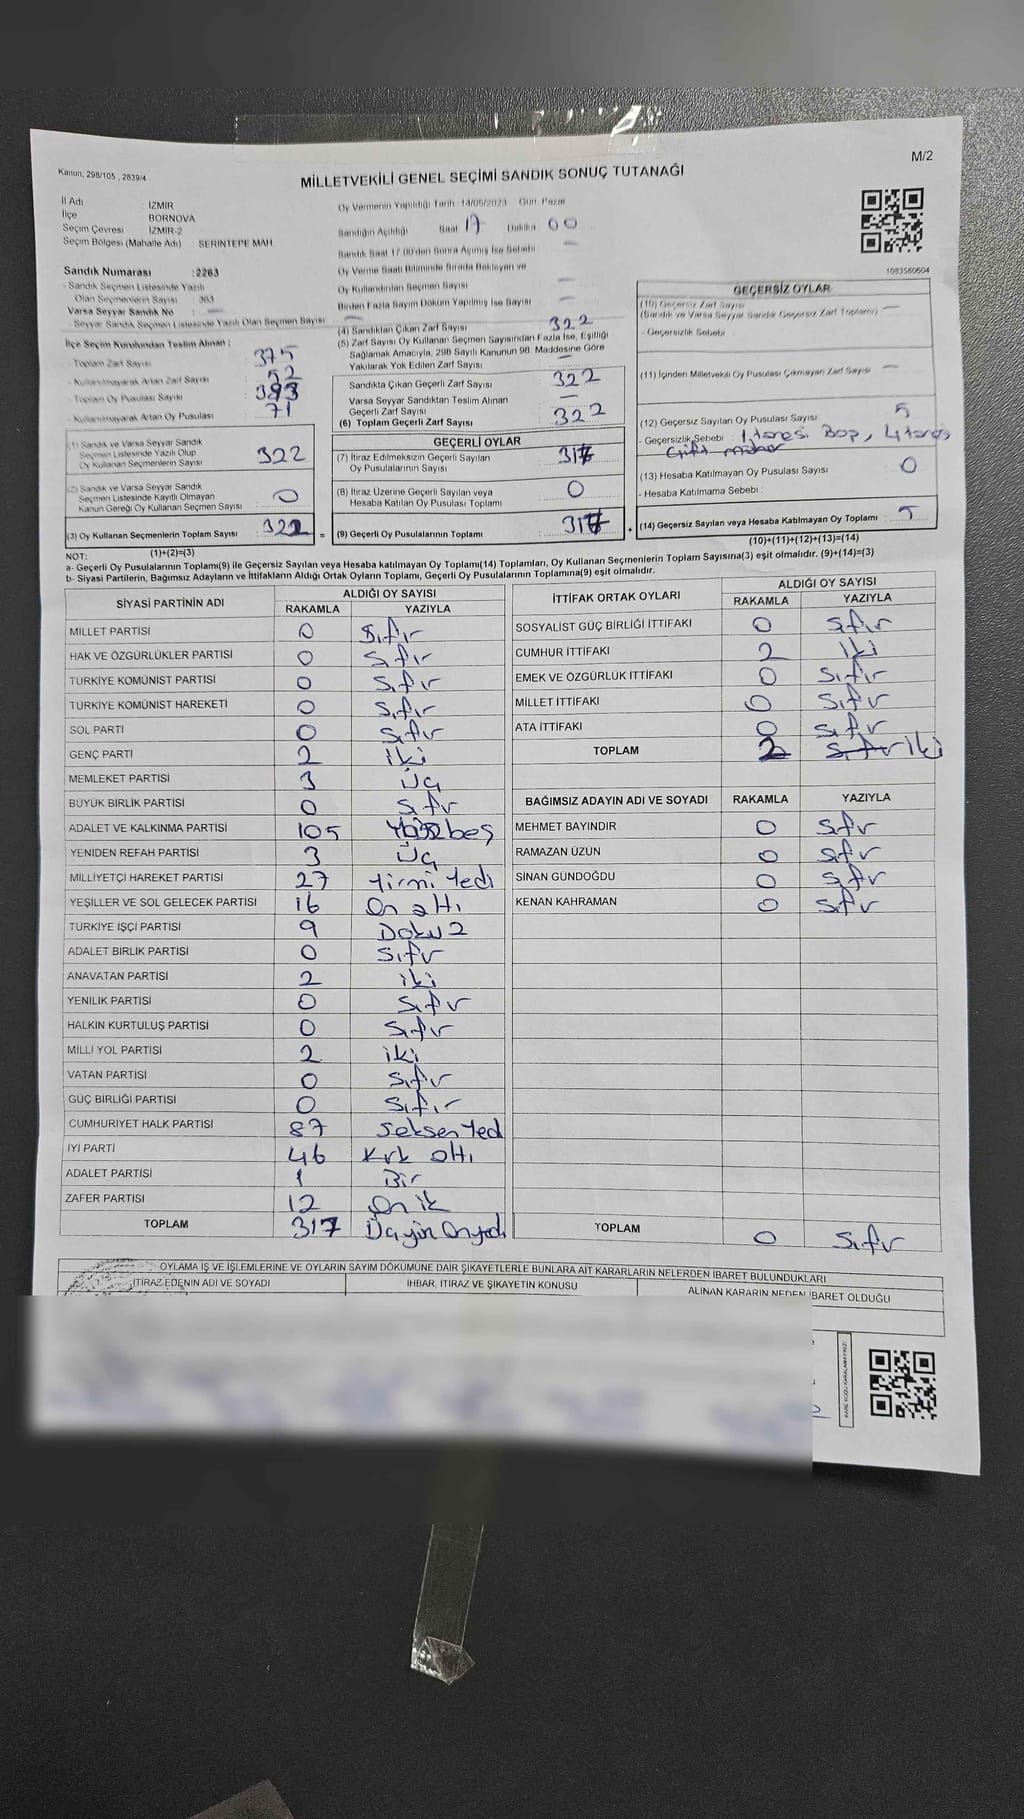 M/2
Kanun; 298/105 , 2839/4
MİLLETVEKİLİ GENEL SEÇİMİ SANDIK SONUÇ TUTANAĞI
İl Adı : İZMİR
İlçe BORNOVA
Seçim Çevresi : İZMİR-2
Seçim Bölgesi (Mahalle Adı) : SERİNTEPE MAH
Sandık Numarası : 2263
- Sandık Seçmen Listesinde Yazılı
Olan Seçmenlerin Sayısı : 363
Varsa Seyyar Sandık No : —
- Seyyar Sandık Seçmen Listesinde Yazılı Olan Seçmen Sayısı : —
İlçe Seçim Kurulundan Teslim Alınan ;
- Toplam Zarf Sayısı 375
- Kullanılmayarak Artan Zarf Sayısı 52
- Toplam Oy Pusulası Sayısı
- Kullanılmayarak Artan Oy Pusulası 71
(1) Sandık ve Varsa Seyyar Sandık
Seçmen Listesinde Yazılı Olup
Oy Kullanan Seçmenlerin Sayısı : 322
(2) Sandık ve Varsa Seyyar Sandık
Seçmen Listesinde Kayıtlı Olmayan
Kanun Gereği Oy Kullanan Seçmen Sayısı : 0
(3) Oy Kullanan Seçmenlerin Toplam Sayısı : 322 =
(1)+(2)=(3)
Oy Vermenin Yapıldığı Tarih : 14/05/2023 Gün Pazar
Sandığın Açıldığı Saat 17 Dakika 00
Sandık Saat 17.00'den Sonra Açılmış İse Sebebi —
Oy Verme Saati Bitiminde Sırada Bekleyen ve
Oy Kullandırılan Seçmen Sayısı —
Birden Fazla Sayım Döküm Yapılmış İse Sayısı —
(4) Sandıktan Çıkan Zarf Sayısı 322
(5) Zarf Sayısı Oy Kullanan Seçmen Sayısından Fazla İse, Eşitliği
Sağlamak Amacıyla, 298 Sayılı Kanunun 98. Maddesine Göre
Yakılarak Yok Edilen Zarf Sayısı : —
Sandıkta Çıkan Geçerli Zarf Sayısı : 322
Varsa Seyyar Sandıktan Teslim Alınan
Geçerli Zarf Sayısı : —
(6) Toplam Geçerli Zarf Sayısı : 322
GEÇERLİ OYLAR
(7) İtiraz Edilmeksizin Geçerli Sayılan
Oy Pusulalarının Sayısı : 317
(8) İtiraz Üzerine Geçerli Sayılan veya
Hesaba Katılan Oy Pusulası Toplamı : 0
(9) Geçerli Oy Pusulalarının Toplamı : 317 +
1083560604
GEÇERSİZ OYLAR
(10) Geçersiz Zarf Sayısı
(Sandık ve Varsa Seyyar Sandık Geçersiz Zarf Toplamı) —
- Geçersizlik Sebebi :
(11) İçinden Milletvekili Oy Pusulası Çıkmayan Zarf Sayısı —
(12) Geçersiz Sayılan Oy Pusulası Sayısı : 5
- Geçersizlik Sebebi : 1 tanesi Boş, 4 tanesi
Çift mühür
(13) Hesaba Katılmayan Oy Pusulası Sayısı : 0
- Hesaba Katılmama Sebebi :
(14) Geçersiz Sayılan veya Hesaba Katılmayan Oy Toplamı : 5
(10)+(11)+(12)+(13)=(14)
NOT:
a- Geçerli Oy Pusulalarının Toplamı(9) ile Geçersiz Sayılan veya Hesaba Katılmayan Oy Toplamı(14) Toplamları, Oy Kullanan Seçmenlerin Toplam Sayısına(3) eşit olmalıdır. (9)+(14)=(3)
b- Siyasi Partilerin, Bağımsız Adayların ve İttifakların Aldığı Ortak Oyların Toplamı, Geçerli Oy Pusulalarının Toplamına(9) eşit olmalıdır.
SİYASİ PARTİNİN ADI ALDIĞI OY SAYISI
RAKAMLA YAZIYLA
MİLLET PARTİSİ 0 Sıfır
HAK VE ÖZGÜRLÜKLER PARTİSİ 0 Sıfır
TÜRKİYE KOMÜNİST PARTİSİ 0 Sıfır
TÜRKİYE KOMÜNİST HAREKETİ 0 Sıfır
SOL PARTİ 0 Sıfır
GENÇ PARTİ 2 iki
MEMLEKET PARTİSİ 3 Üç
BÜYÜK BİRLİK PARTİSİ 0 Sıfır
ADALET VE KALKINMA PARTİSİ 105 Yüzbeş
YENİDEN REFAH PARTİSİ 3 Üç
MİLLİYETÇİ HAREKET PARTİSİ 27 Yirmi Yedi
YEŞİLLER VE SOL GELECEK PARTİSİ 16 On altı
TÜRKİYE İŞÇİ PARTİSİ 9 Dokuz
ADALET BİRLİK PARTİSİ 0 Sıfır
ANAVATAN PARTİSİ 2 iki
YENİLİK PARTİSİ 0 Sıfır
HALKIN KURTULUŞ PARTİSİ 0 Sıfır
MİLLİ YOL PARTİSİ 2 iki
VATAN PARTİSİ 0 Sıfır
GÜÇ BİRLİĞİ PARTİSİ 0 Sıfır
CUMHURİYET HALK PARTİSİ 87 Seksen Yedi
İYİ PARTİ 46 Kırk altı
ADALET PARTİSİ 1 Bir
ZAFER PARTİSİ 12 On iki
TOPLAM 317 Üçyüz Onyedi
İTTİFAK ORTAK OYLARI ALDIĞI OY SAYISI
RAKAMLA YAZIYLA
SOSYALİST GÜÇ BİRLİĞİ İTTİFAKI 0 Sıfır
CUMHUR İTTİFAKI 2 İki
EMEK VE ÖZGÜRLÜK İTTİFAKI 0 Sıfır
MİLLET İTTİFAKI 0 Sıfır
ATA İTTİFAKI 0 Sıfır
TOPLAM 2 Sıfır iki
BAĞIMSIZ ADAYIN ADI VE SOYADI RAKAMLA YAZIYLA
MEHMET BAYINDIR 0 Sıfır
RAMAZAN ÜZÜN 0 Sıfır
SİNAN GÜNDOĞDU 0 Sıfır
KENAN KAHRAMAN 0 Sıfır
TOPLAM 0 Sıfır
OYLAMA İŞ VE İŞLEMLERİNE VE OYLARIN SAYIM DÖKÜMÜNE DAİR ŞİKAYETLERLE BUNLARA AİT KARARLARIN NELERDEN İBARET BULUNDUKLARI
İTİRAZ EDENİN ADI VE SOYADI İHBAR, İTİRAZ VE ŞİKAYETİN KONUSU ALINAN KARARIN NEDEN İBARET OLDUĞU
KARE KODU KARALAMAYINIZ!